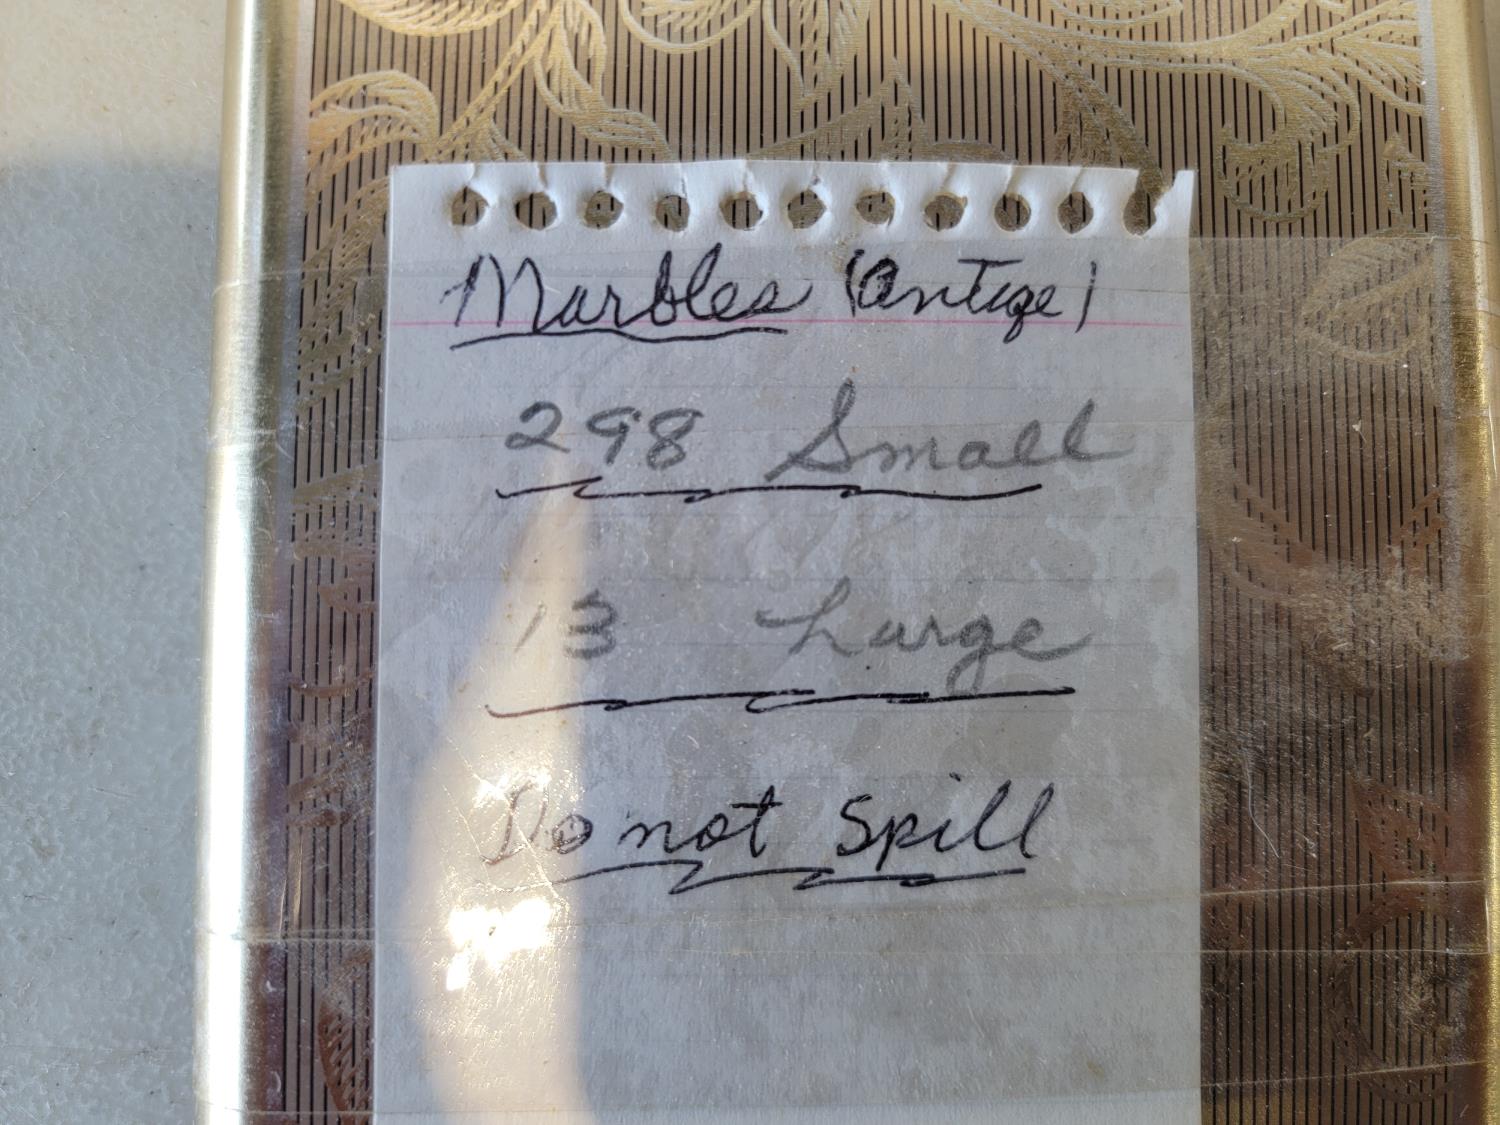 Marbles (Antige)
298 Small
13 Large
Do not Spill